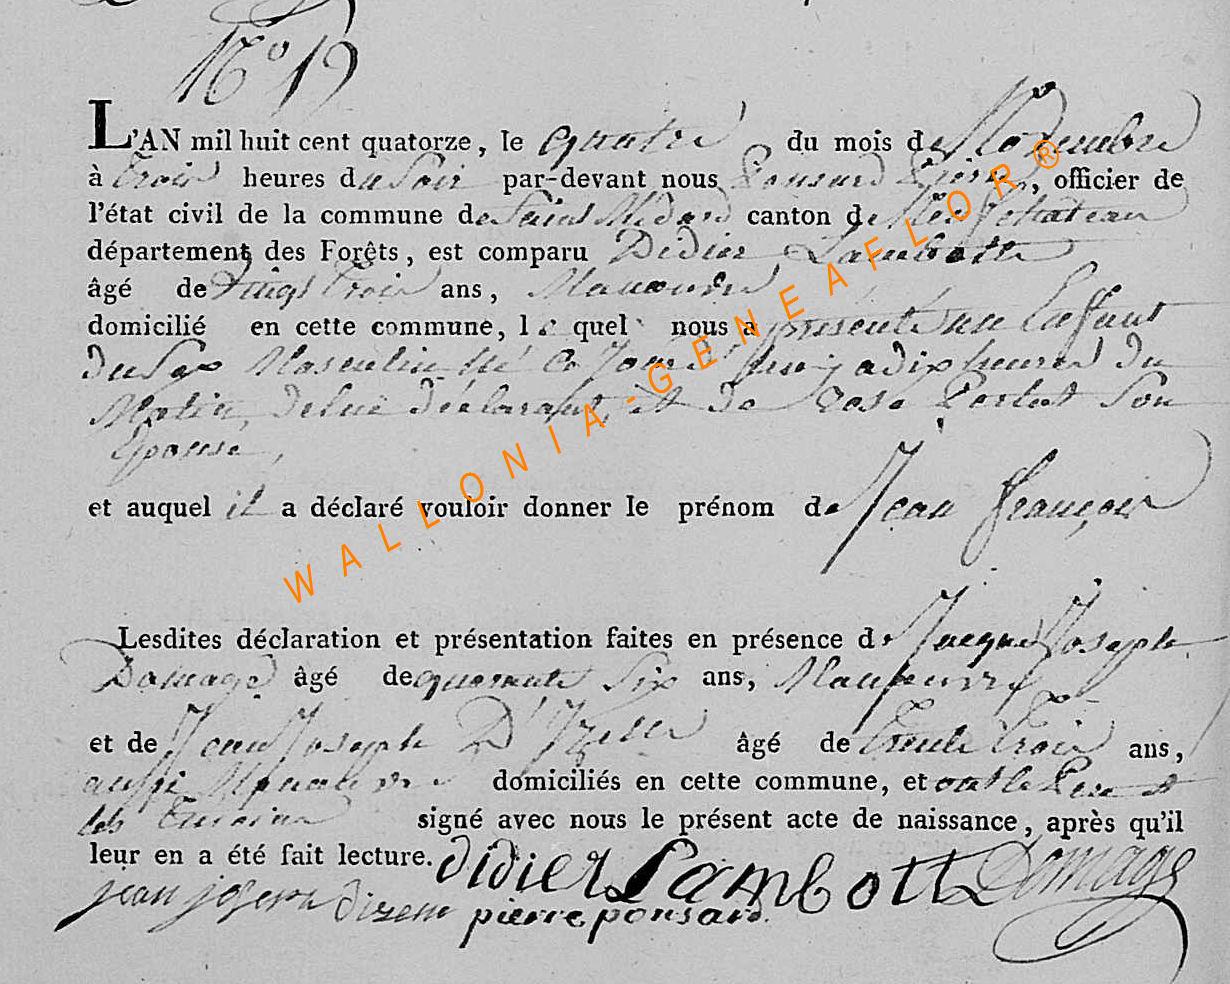 N° 19
L'AN mil huit cent quatorze, le quatre du mois de Novembre
à trois heures du Soir par-devant nous Ponsard Pierre, officier de
l'état civil de la commune de Saint Médard canton de Neufchateau
département des Forêts, est comparu Didier Lambotte
âgé de Vingt trois ans, Manouvrier
domicilié en cette commune, lequel nous a présenté un Enfant
du Sex Masculin Né ce Jourd'huy a dix heures du
Matin, de lui déclarant, et de Rose Son
Epouse,
et auquel il a déclaré vouloir donner le prénom de Jean François
Lesdites déclaration et présentation faites en présence de Jacque Joseph
Domage âgé de quarante Six ans, Manouvrier
et de Jean Joseph D'Izelle âgé de trente trois ans,
aussi Manouvrier domiciliés en cette commune, et ont le Pere et
les Temoins signé avec nous le présent acte de naissance, après qu'il
leur en a été fait lecture. didier Lambotte Domage
jean joseph dizele pierre ponsard.
WALLONIA-GENEAFLOR®